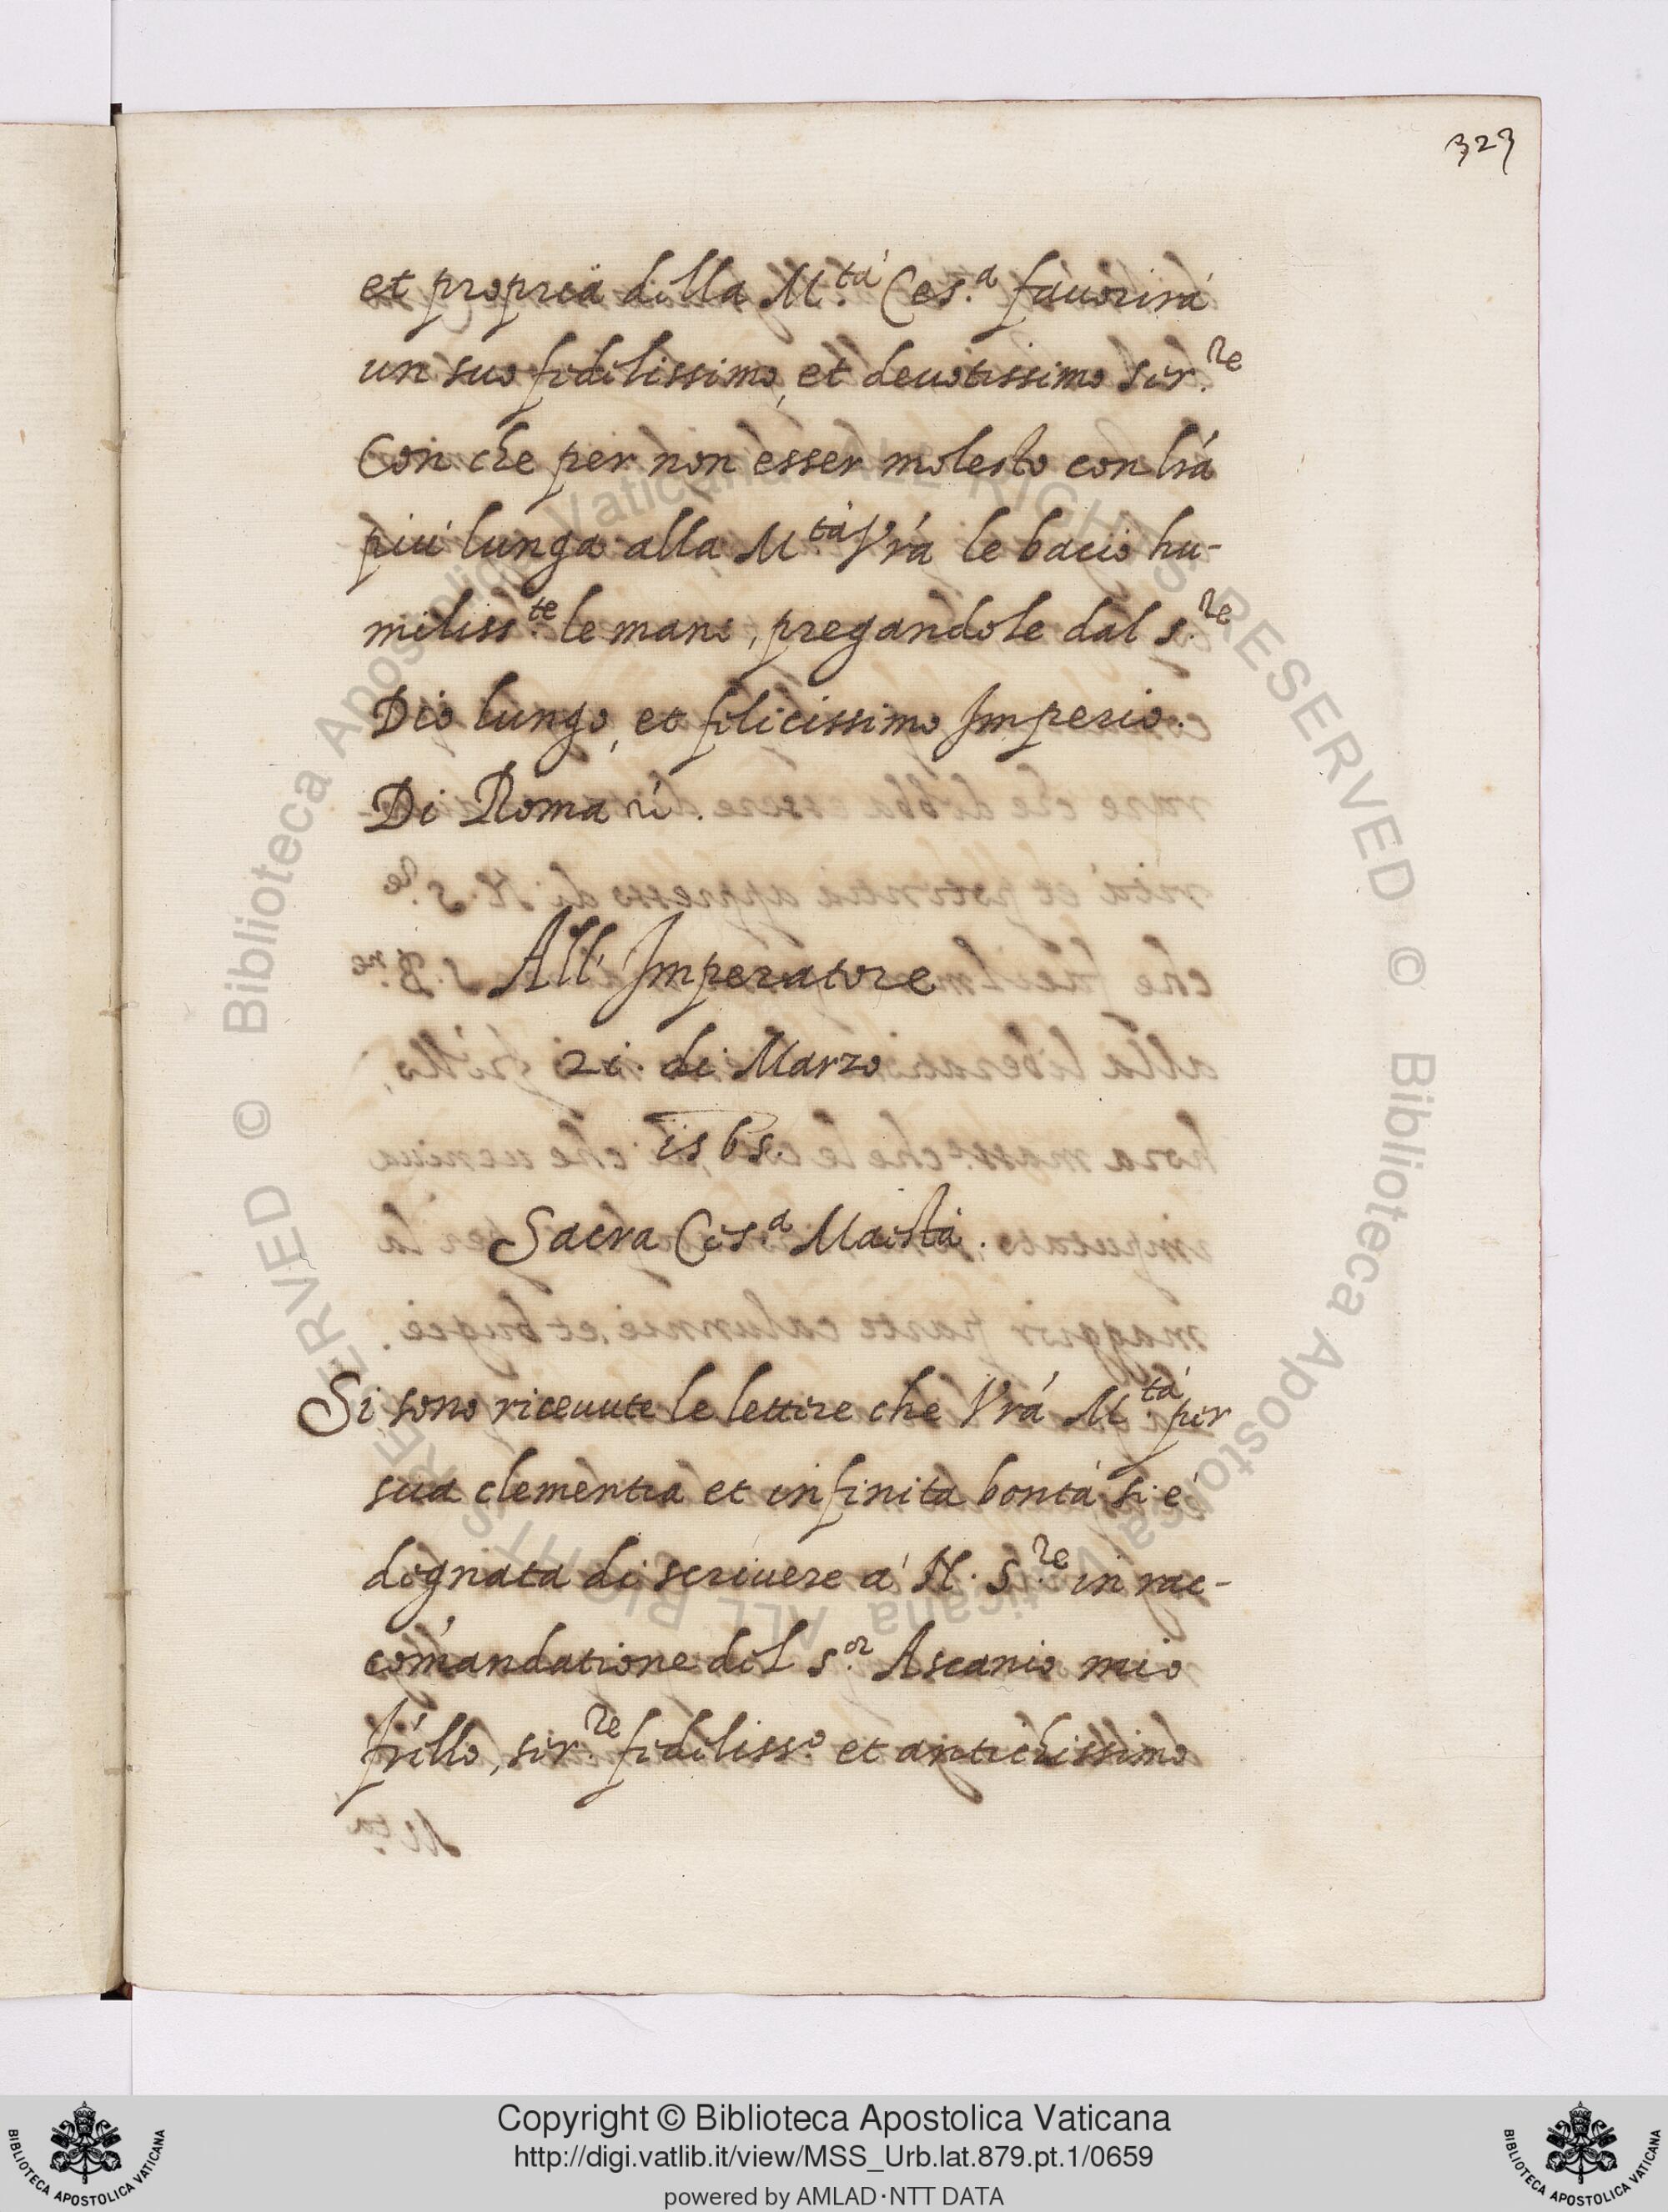 323
et propria della M.tá Ces.a fauorirá
un suo fedelissimo, et deuotissimo ser.re
Con che per non esser molesto con lrá
piú lunga alla M.tá Vrá le bacio hu-
miliss.te le mani, pregandole dal s.re
Dio lungo, et felicissimo Imperio.
Di Roma
All' Imperatore
21. di Marzo
Sacra Ces.a Maestá.
Si sono riceuute le lettere che Vrá M.tá per
sua clementia et infinita bontá si é
degnata di scriuere á N. S.re in rac-
comandatione del s.or Ascanio mio
fréllo, ser.re fedeliss.o et antichissimo
© Biblioteca Apostolica Vaticana ALL RIGHTS RESERVED
© Biblioteca Apostolica Vaticana ALL RIGHTS RESERVED
Copyright © Biblioteca Apostolica Vaticana
http://digi.vatlib.it/view/MSS_Urb.lat.879.pt.1/0659
powered by AMLAD·NTT DATA
BIBLIOTECA APOSTOLICA VATICANA
BIBLIOTECA APOSTOLICA VATICANA